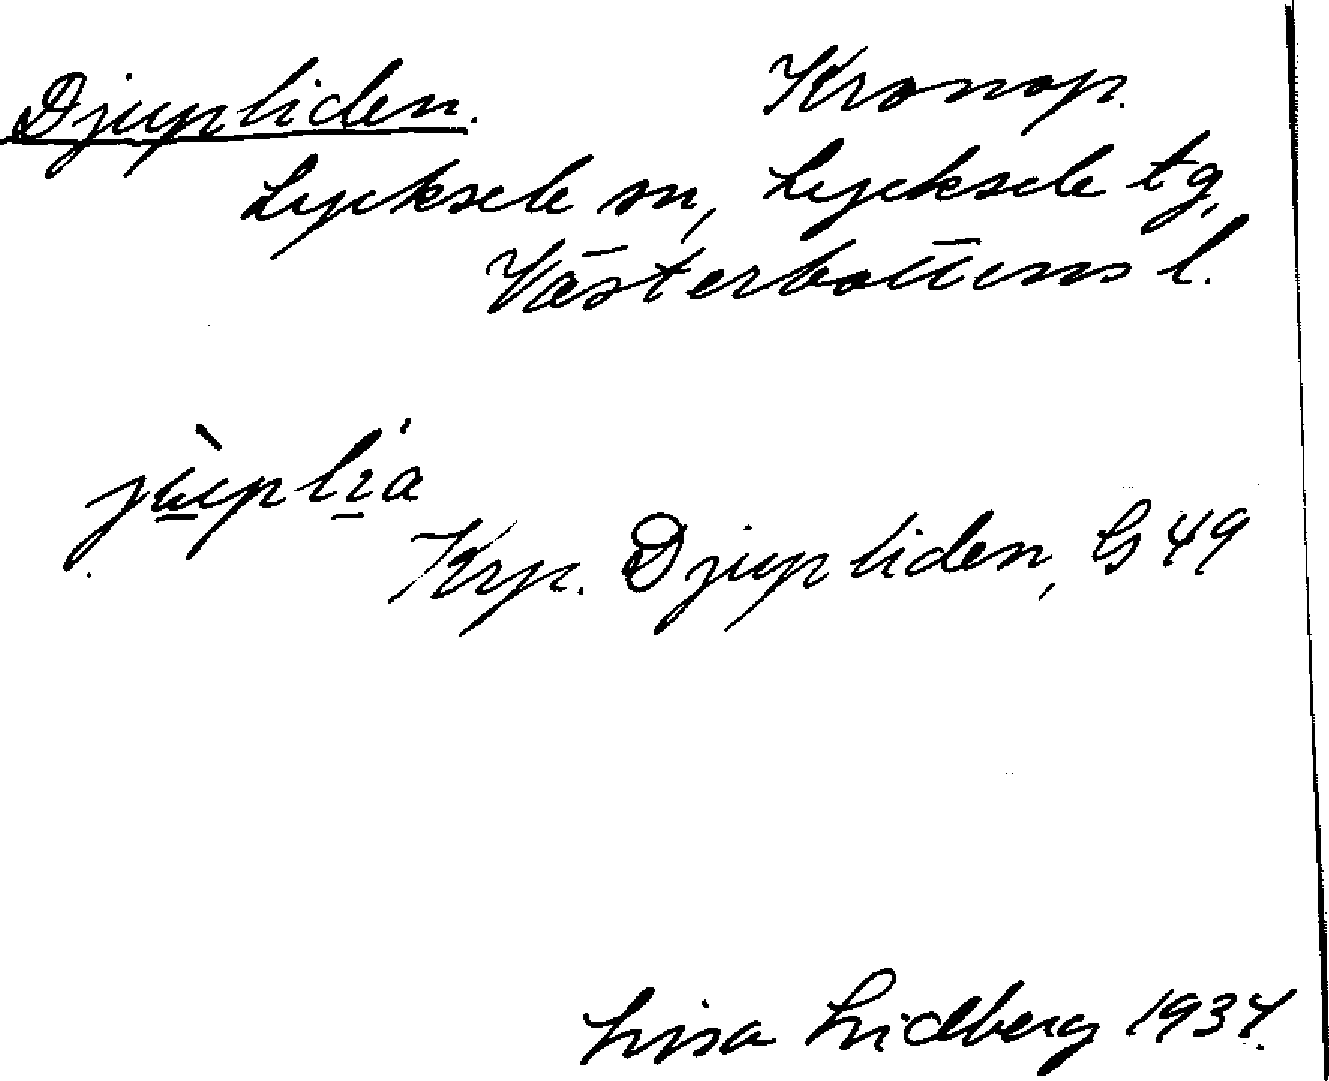 Djupliden. Kronop.
Lycksele sn, Lycksele tg,
Västerbottens l.
Krp. Djupliden, G 49
Lisa Lidberg 1937.